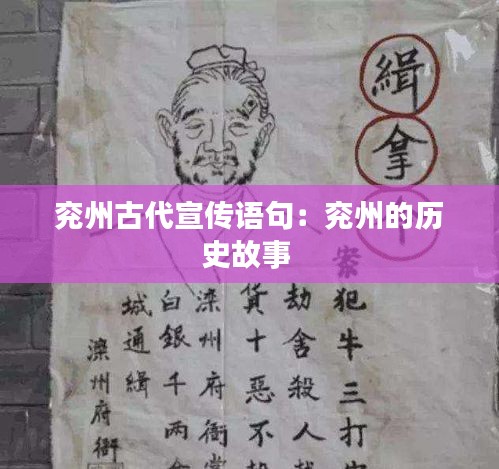 兖州古代宣传语句：兖州的历
史故事
緝拿
案犯牛三打
劫舍殺人
貨十惡不
滦州府衙
白銀千两
城通緝
滦州府衙